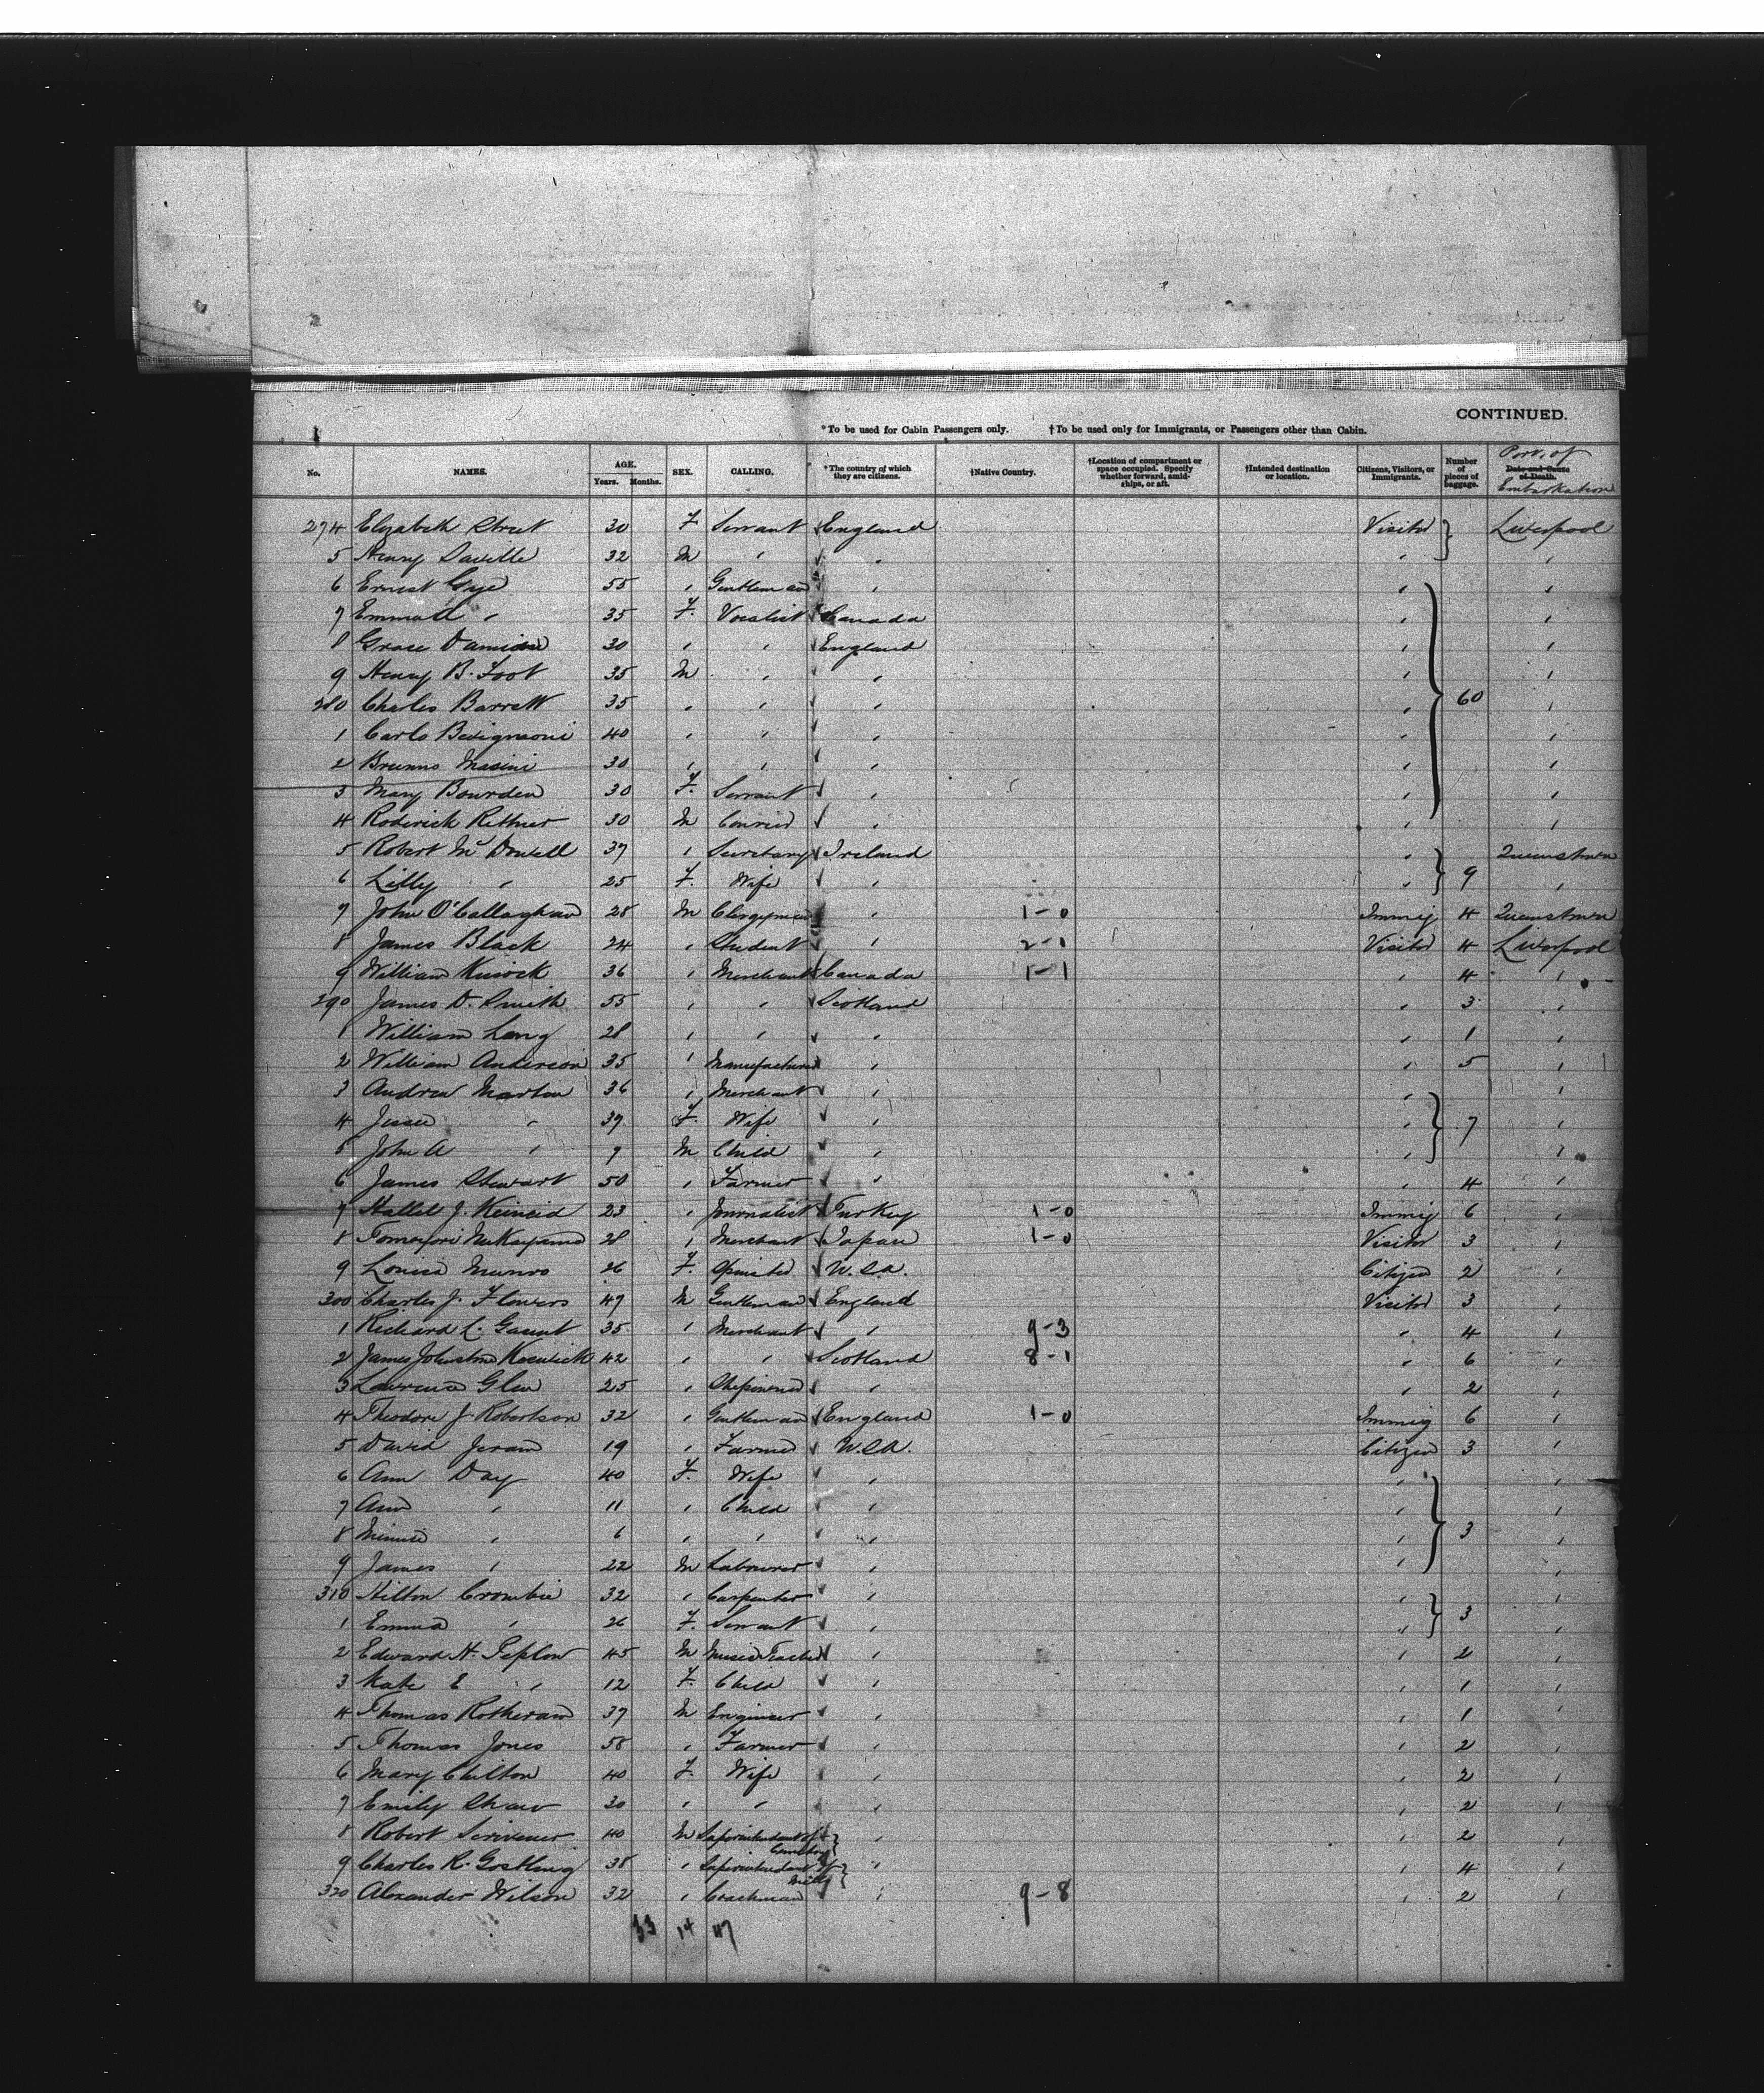 CONTINUED.
*To be used for Cabin Passengers only. †To be used only for Immigrants, or Passengers other than Cabin.
No. NAMES. AGE. Years. Months. SEX. CALLING. *The country of which they are citizens. †Native Country. †Location of compartment or space occupied. Specify whether forward, amidships, or aft. †Intended destination or location. Citizens, Visitors, or Immigrants. Number of pieces of baggage. Date and Cause of Death. Port of Embarkation
274 Elizabeth Street 30 F Servant England Visitor Liverpool
5 Henry Saville 32 M " " " "
6 Ernest Gye 55 " Gentleman " " "
7 Emma A " 35 F. Vocalist Canada " "
8 Grace Damian 30 " " England " "
9 Henry B. Foot 35 M " " " "
280 Charles Barrett 35 " " " " 60 "
1 Carlo Bevignani 40 " " " " "
2 Brunno Masini 30 " " " " "
3 Mary Bourden 30 F. Servant " " "
4 Roderick 30 M Courier " " "
5 Robert McDowell 37 " Secretary Ireland " Queenstown
6 Lilly " 25 F. Wife " " 9 "
7 John O'Callaghan 28 M Clergyman " 1-0 Immig 4 Queenstown
8 James Black 24 " Student " 2-1 Visitor 4 Liverpool
9 William 36 " Merchant Canada 1-1 " 4 "
290 James D. Smith 55 " " Scotland " 3 "
1 William Lang 28 " " " " 1 "
2 William Anderson 35 " Manufacturer " " 5 "
3 Andrew Marton 36 " Merchant " " "
4 Jessie " 39 F. Wife " " 7 "
5 John A " 9 M Child " " "
6 James Stewart 50 " Farmer " " 4 "
7 J. 23 " Journalist Turkey 1-0 Immig 6 "
8 28 " Merchant Japan 1-0 Visitor 3 "
9 Louisa Munro 26 F. Spinster U.S.A. Citizen 2 "
300 Charles J. Flowers 47 M Gentleman England Visitor 3 "
1 Richard L. Gaunt 35 " Merchant " 9-3 " 4 "
2 James Johnston Keswick 42 " " Scotland 8-1 " 6 "
3 Lawrence Glen 25 " Shipowner " " 2 "
4 Theodore J. Robertson 32 " Gentleman England 1-0 Immig 6 "
5 David Jeram 19 " Farmer U.S.A. Citizen 3 "
6 Ann Day 40 F. Wife " " "
7 Ann " 11 " Child " " "
8 Minnie " 6 " " " " 3 "
9 James " 22 M Labourer " " "
310 Hilton Crombie 32 " Carpenter " " "
1 Emma " 26 F. Servant " " 3 "
2 Edward H. Peplow 45 M Music Teacher " " 2 "
3 Kate E " 12 F. Child " " 1 "
4 Thomas Rotheram 37 M Engineer " " 1 "
5 Thomas Jones 58 " Farmer " " 2 "
6 Mary Chilton 40 F. Wife " " 2 "
7 Emily Shaw 30 " " " " 2 "
8 Robert Scrivener 40 M Superintendent of Cemetery " " 2 "
9 Charles R. Gostling 38 " Superintendent of Mills " " 4 "
320 Alexander Wilson 32 " Coachman " 9-8 " 2 "
33 14 47